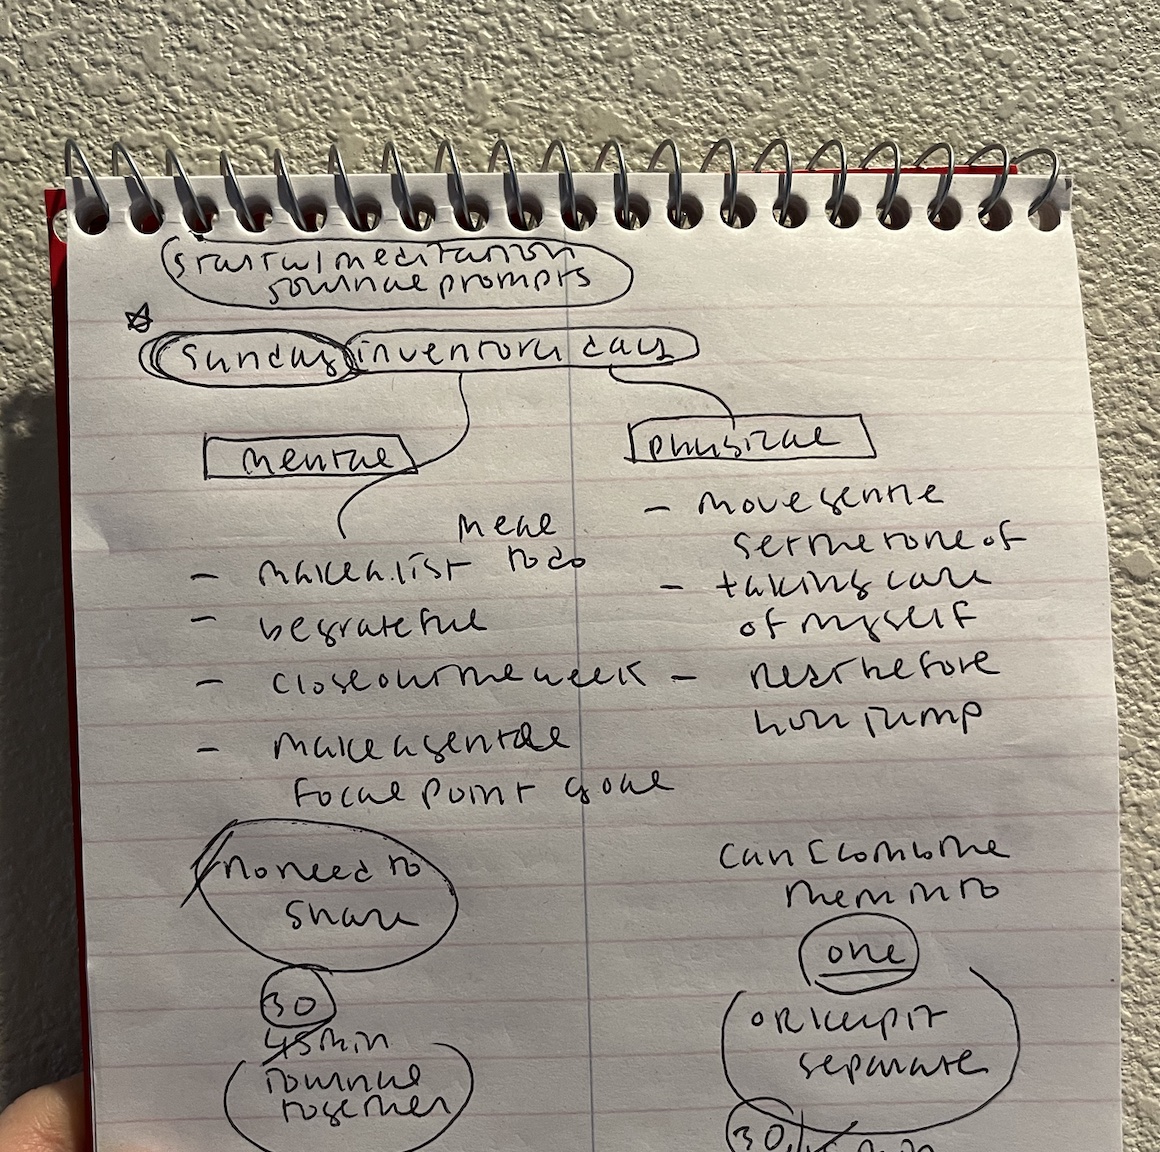 meditation
journal prompts
Sunday inventory day
mental
meal
to do
- make a list
- be grateful
- close out the week
- make a gentle
focal point goal
no need to
share
30
45 min
journal
together
physical
- move gentle
set the tone of
- taking care
of myself
- rest before
jump
can I combine
them into
one
or keep it
separate
30